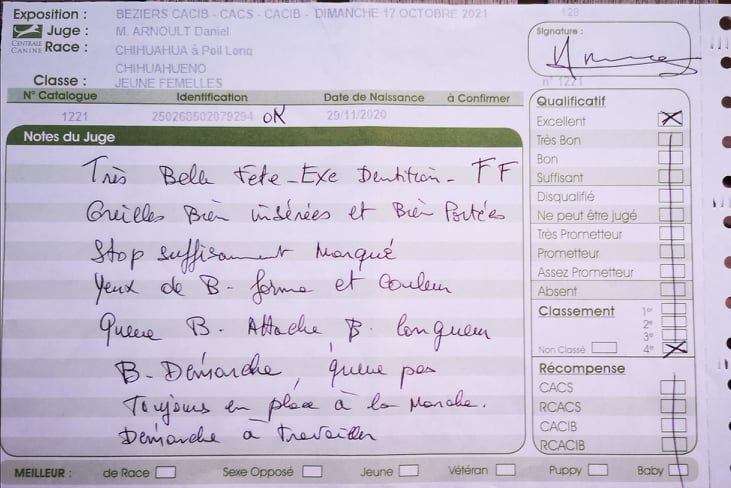 Exposition : BEZIERS CACIB - CACS - CACIB - DIMANCHE 17 OCTOBRE 2021 128
Juge : M. ARNOULT Daniel
CENTRALE CANINE Race : CHIHUAHUA à Poil Long
CHIHUAHUENO
Classe : JEUNE FEMELLES
Signature :
n° 1221
N° Catalogue Identification Date de Naissance à Confirmer
1221 250268502079294 OK 29/11/2020
Notes du Juge
Très Belle Tête - Exe Dentition - FF
Oreilles Bien insérées et Bien Portées
Stop suffisament Marqué
Yeux de B - forme et Couleur
Queue B. Attache B. longueur
B - Démarche, queue pas
Toujours en place à la Marche.
Démarche à travailler
Qualificatif
Excellent
Très Bon
Bon
Suffisant
Disqualifié
Ne peut être jugé
Très Prometteur
Prometteur
Assez Prometteur
Absent
Classement 1er
2e
3e
Non Classé 4e
Récompense
CACS
RCACS
CACIB
RCACIB
MEILLEUR : de Race Sexe Opposé Jeune Vétéran Puppy Baby